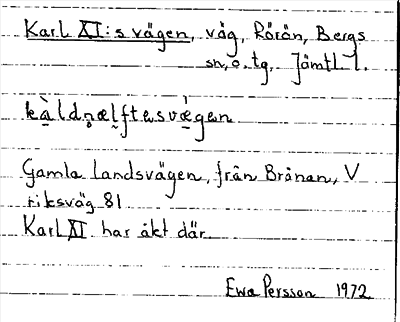 Karl XI:s vägen, väg, Rörön, Bergs
sn, o. tg. Jämtl. l.
Gamla landsvägen, från Brånan, V
riksväg 81.
Karl XI har åkt där.
Ewa Persson 1972